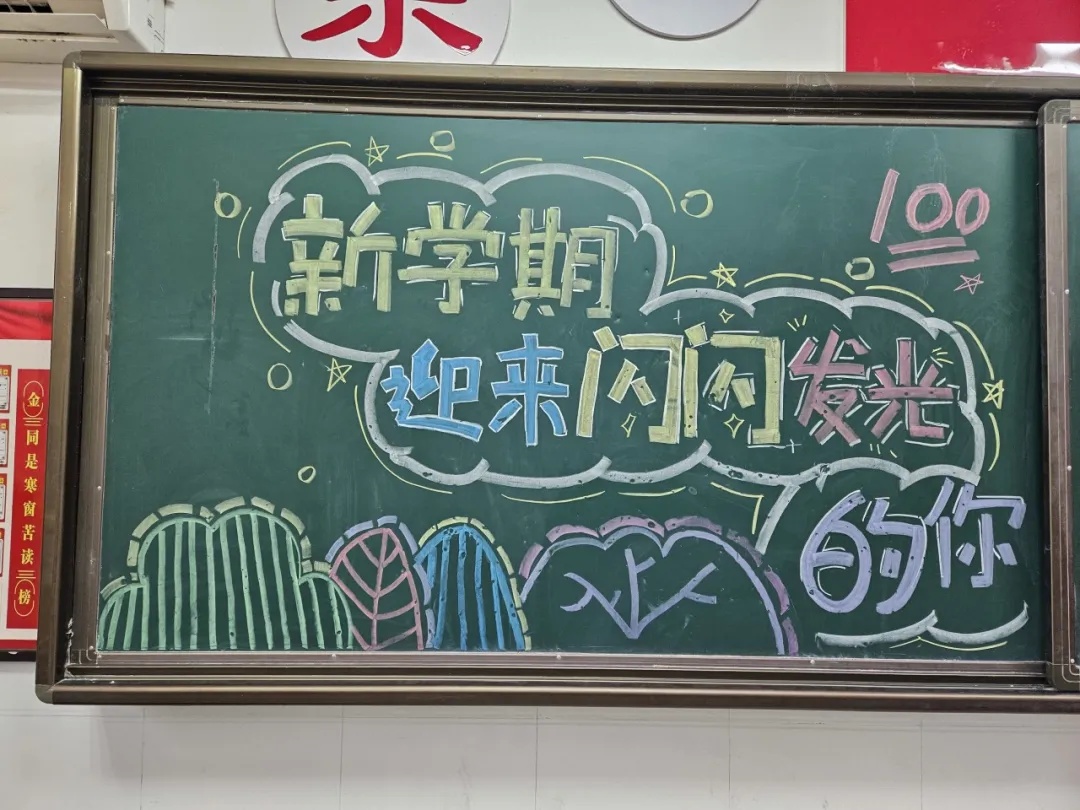 新学期
100
迎来闪闪发光
的你
金
同是寒窗苦读
榜